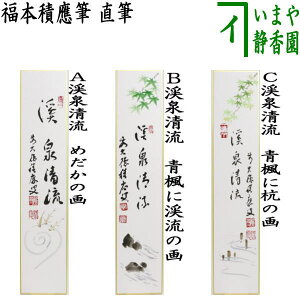 福本積應筆 直筆
いまや
静香園
A渓泉清流 めだかの画
B渓泉清流 青楓に渓流の画
C渓泉清流 青楓に杭の画
渓泉清流
渓泉清流
渓泉清流